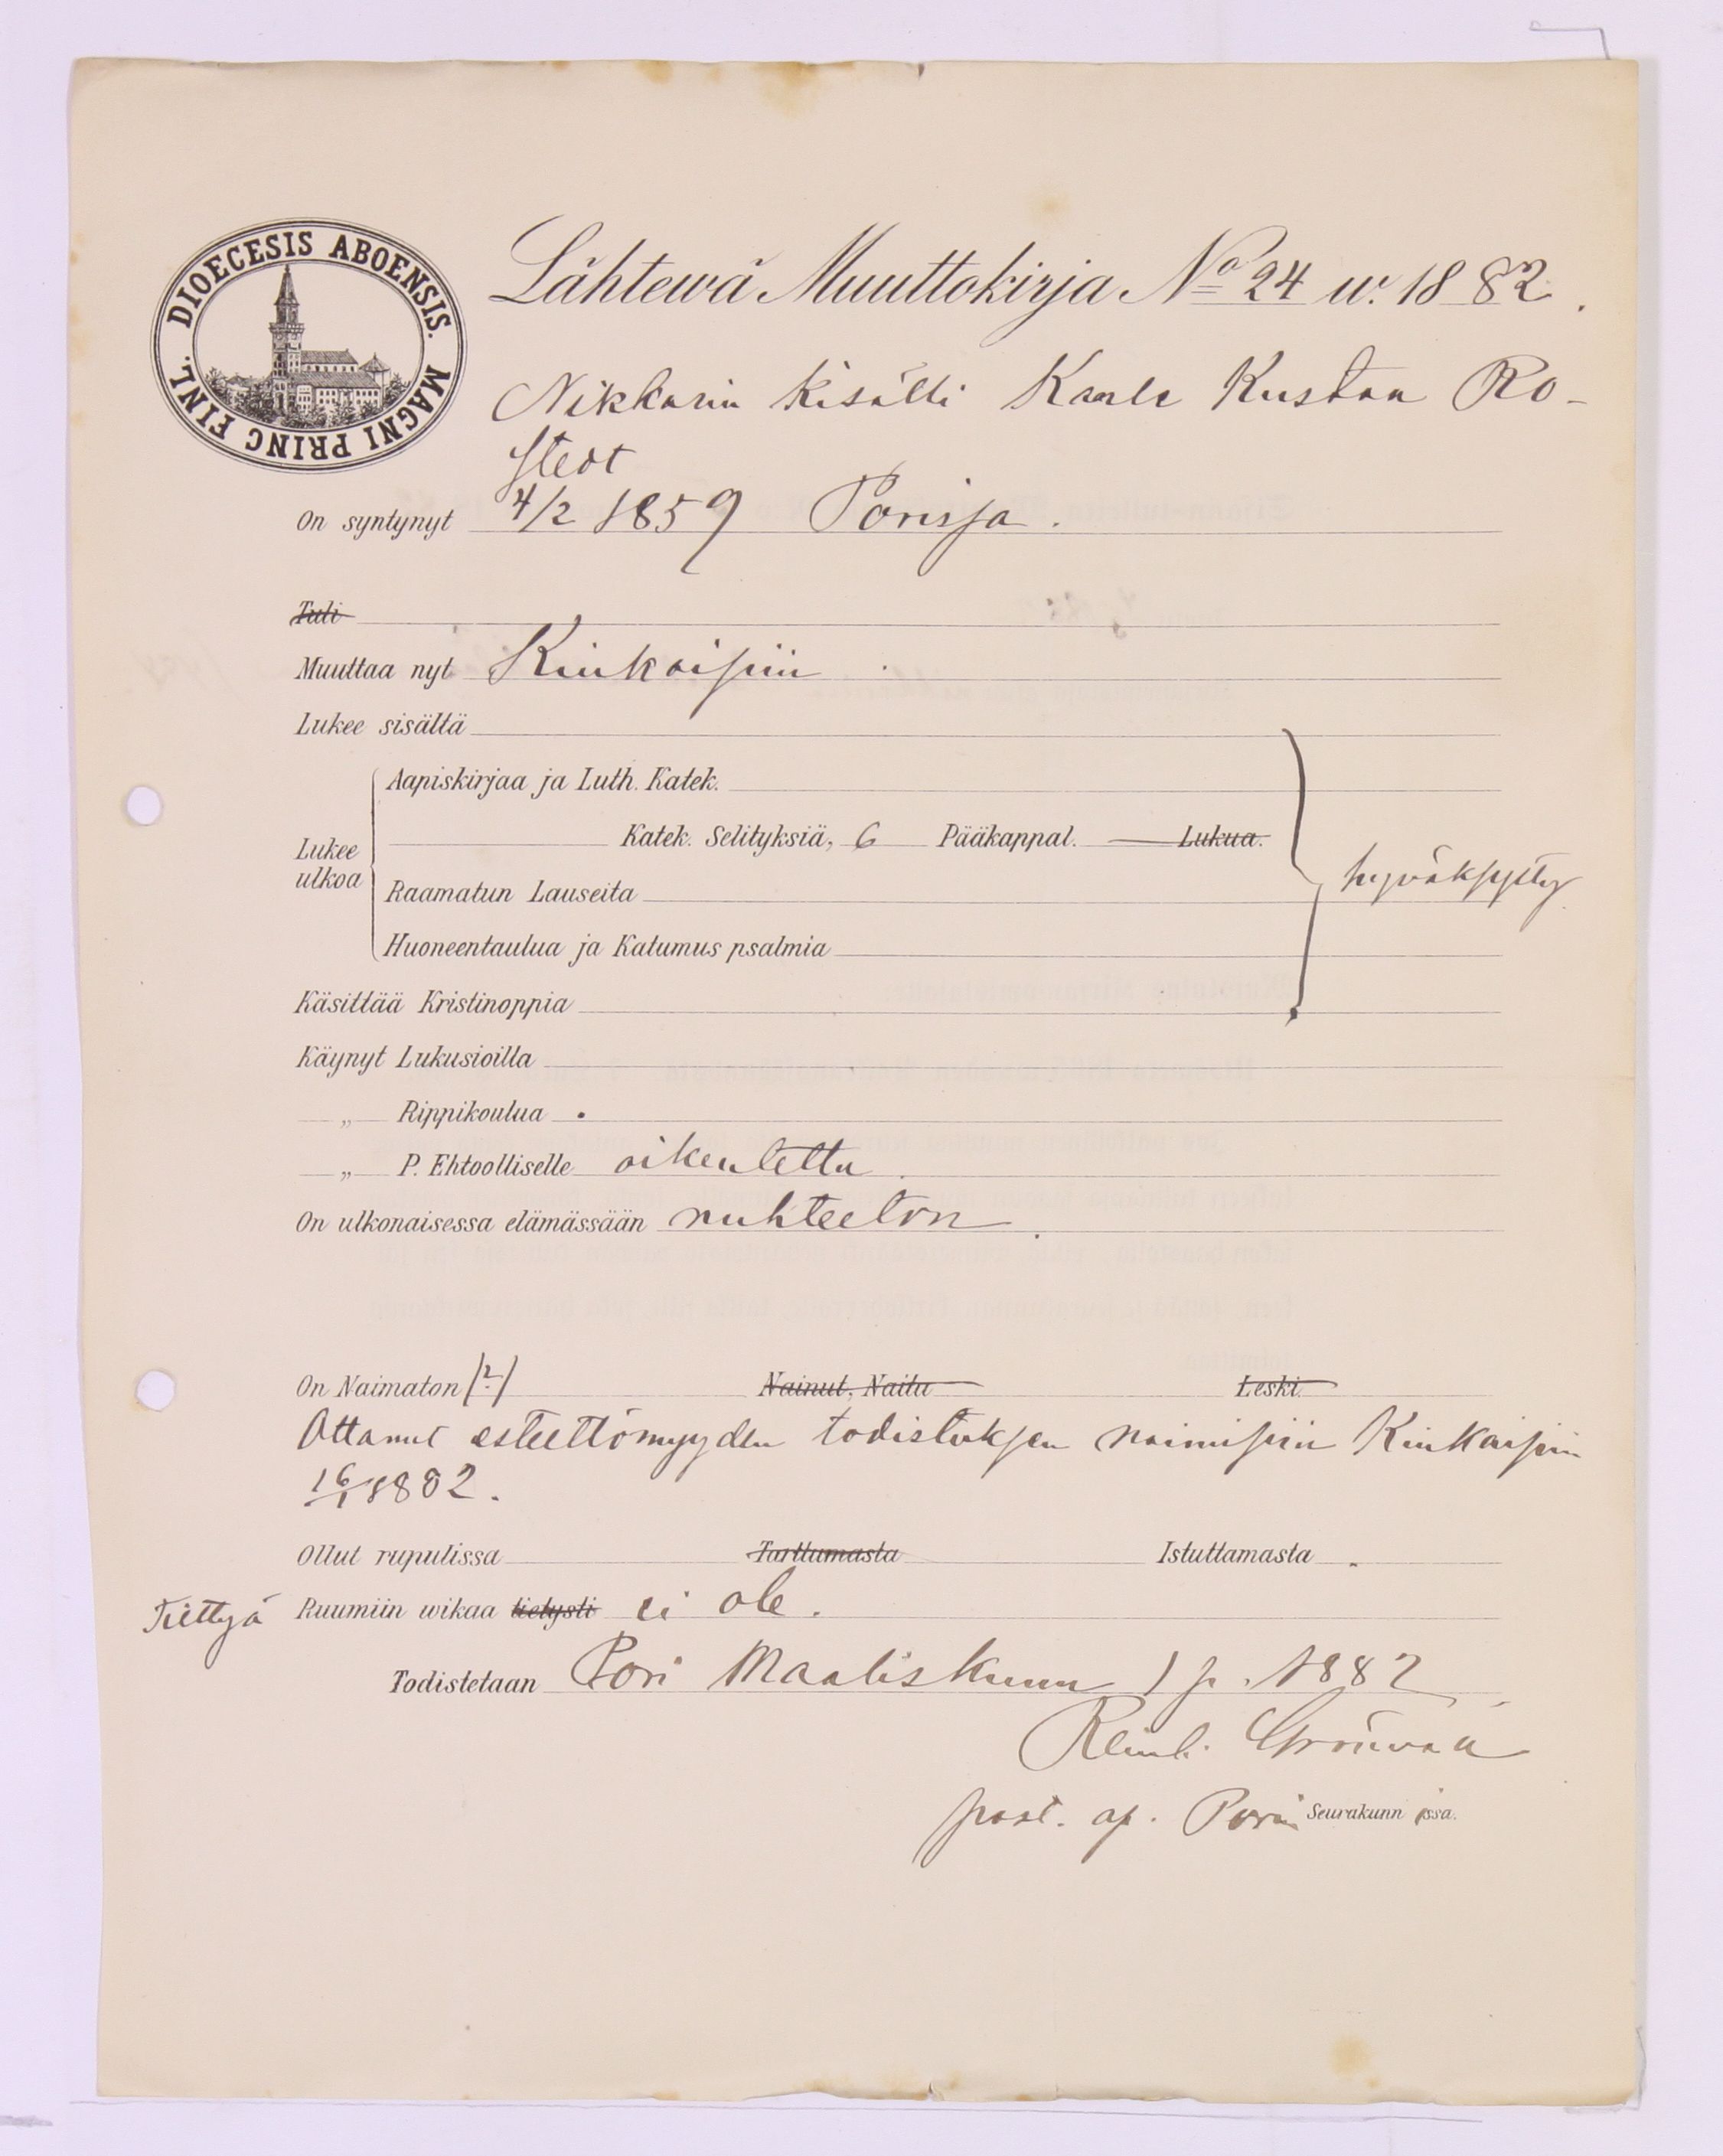 DIOECESIS ABOENSIS. MAGNI PRINC FINL.
Lähtewä Muuttokirja No 24 w. 1882.
Nikkarin kisälli Kaale Kustaa Ro-
stedt
On syntynyt 4/2 1859 Porissa.
Tuli
Muuttaa nyt Kiukaisiin
Lukee sisältä
Aapiskirjaa ja Luth. Katek.
Katek. Selityksiä, 6 Pääkappal. Lukua.
Lukee
ulkoa
hyväksytty
Raamatun Lauseita
Huoneentaulua ja Katumus psalmia
Käsittää Kristinoppia
Käynyt Lukusioilla
„ Rippikoulua
„ P. Ehtoolliselle oikeutettu.
On ulkonaisessa elämässään nuhteeton.
On Naimaton (?) Nainut, Naitu Leski.
Ottanut esteettömyyden todistuksen naimisiin Kiukaisiin
16/1 1882.
Ollut rupulissa Tarttumasta Istuttamasta
Tiettyä Ruumiin wikaa tietysti ei ole.
Todistetaan Pori Maaliskuun 1 p. 1882
past. ap. Porin Seurakunnissa.